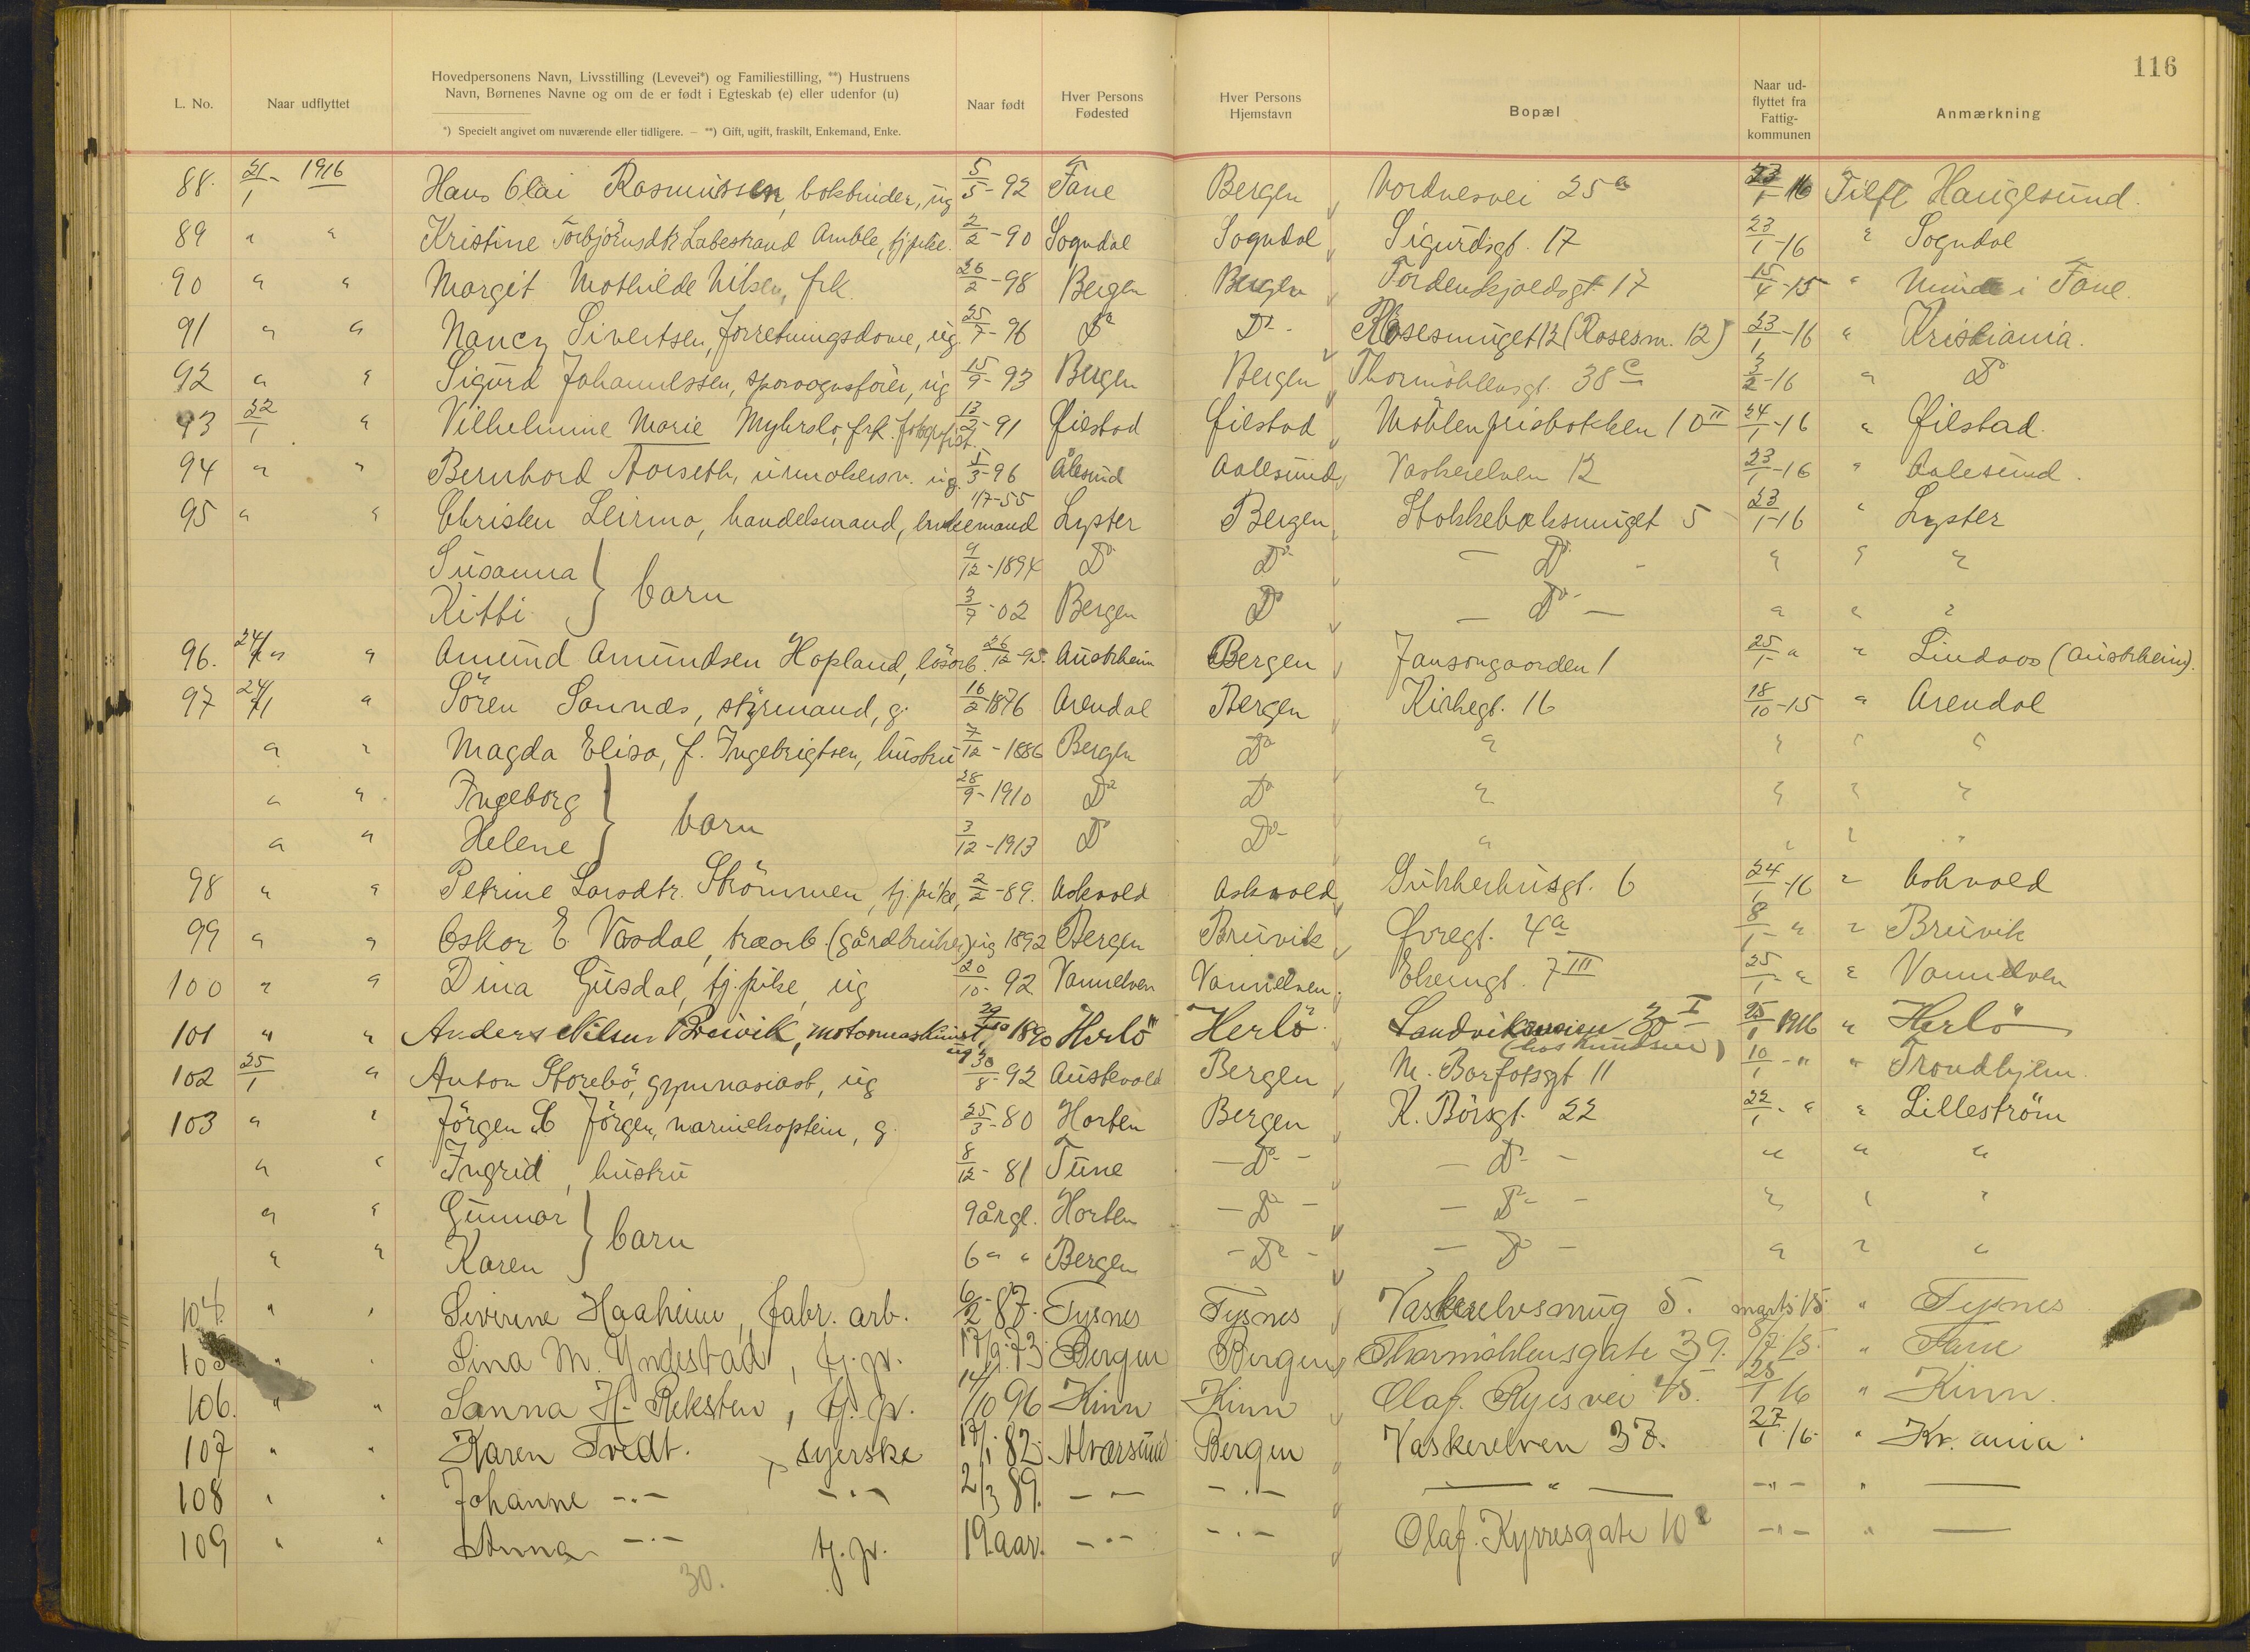 116
L. No.
Naar udflyttet
Hovedpersonens Navn, Livsstilling (Levevei*) og Familiestilling, **) Hustruens
Navn, Børnenes Navne og om de er født i Egteskab (e) eller udenfor (u)
*) Specielt angivet om nuværende eller tidligere. — **) Gift, ugift, fraskilt, Enkemand, Enke.
Naar født
Hver Persons Fødested
Hver Persons Hjemstavn
Bopæl
Naar ud-flyttet fra Fattig-kommunen
Anmærkning
88. 21/1 - 1916 Hans Olai Rasmussen, bokbinder, ug 5/5-92 Fane Bergen Nordnesvei 25a 23/1-16 Tilfl Haugesund.
89 " " Kristine Torbjörnsdtr Labestrand Amble, tj.pike. 2/2-90 Sogndal Sogndal Sigurdsgt. 17 23/1-16 " Sogndal
90 " " Margit Mathilde Nilsen, frk. 26/2-98 Bergen Bergen Tordenskjoldsgt 17 15/4-15 " Minde i Fane.
91 " " Nancy Sivertsen, forretningsdame, ug. 25/7-96 Do Do - Rosesmuget 12 (Rosesm. 12) 23/1-16 " Kristiania.
92 " " Sigurd Johannessen, sporvognsförer, ug 15/9-93 Bergen Bergen Thormöhlensgt. 38c 3/2-16 " Do
93 22/1 " Vilhelmine Marie Myhrslo, frk. 13/2-91 Øiestad Øiestad Möhlenprisbakken 10 II 24/1-16 " Øiestad.
94 " " Bernhard Aarseth, urmakersv. ug. 1/3-96 Ålesund Aalesund Vaskerelven 12 23/1-16 " Aalesund.
95 " " Christen Leirmo, handelsmand, enkemand 1/7-55 Lyster Bergen Stokkebæksmuget 5 23/1-16 " Lyster
Susanna } barn 9/12-1894 Do Do - Do - " " "
Kitti 3/7-02 Bergen Do - Do - " " "
96. 24/1 " Amund Amundsen Hopland, lösarb. 26/12-95. Austrheim Bergen Jansongaarden 1 25/1 " " Lindaas (Austrheim).
97 24/1 " Sören Sannæs, styrmand, g. 16/2 1876 Arendal Bergen Kirkegt. 16 18/10-15 " Arendal
" " Magda Elisa, f. Ingebrigtsen, hustru 7/12-1886 Bergen Do " " " "
" " Ingeborg } barn 28/9-1910 Do Do " " " "
" " Helene 3/12-1913 Do Do - " " " "
98 " " Petrine Larsdtr. Strömmen, tj.pike, 2/2-89. Askvold Askvold Sukkerhusgt. 6 24/1-16 " Askvold
99 " " Oskar E. Vasdal, træarb. (gårdbruker) ug 1892 Bergen Bruvik Øvregt. 4a 8/1-" " Bruvik
100 " " Dina Gusdal, tj.pike, ug 20/10-92 Vannelven Vannelven. Ekerngt. 7 III 25/1-" " Vannelven
101 " " Anders Nilsen Breivik, motormaskinist, ug 1890 Herlö Herlö Sandviksveien 30 I (hos Knudsen) 25/1 1916 " Herlö
102 25/1 " Anton Storebö, gymnasiast, ug 30/8-92 Austevold Bergen N. Barfotsgt 11 10/1-" " Trondhjem.
103 " " Jörgen C Jörgen, marinekaptein, g. 25/3-80 Horten Bergen K. Börsgt. 22 22/1-" " Lilleström
" " Ingrid, hustru 8/12-81 Tune - Do - - Do - " " "
" " Gunnar } barn 9årgl. Horten - Do - - Do - " " "
" " Karen 6 " " Bergen - Do - - Do - " " "
104. " " Severine Haaheim, fabr. arb. 6/2-87. Tysnes Tysnes Vaskerelvsmug 5. marts 15. " Tysnes
105 " " Sina M. Yndestad, tj.p. 17/9.73. Bergen Bergen Thormöhlensgate 39. 8/7.15. " Fane
106. " " Sanna H. Reksten, tj.p. 14/10 96 Kinn Kinn Olaf. Ryesvei 45. 28/1 16 " Kinn.
107 " " Karen Tvedt. syerske 17/1.82. Alværsund Bergen Vaskerelven 37. 27/1.16. " Kr.ania.
108 " " Johanne -"- -"- 2/3 89. -"- -"- -"- -"- " —
109 " " Anna -"- tj.p. 19.aar. -"- -"- Olaf. Kyrresgate 10 -"- " —
30.